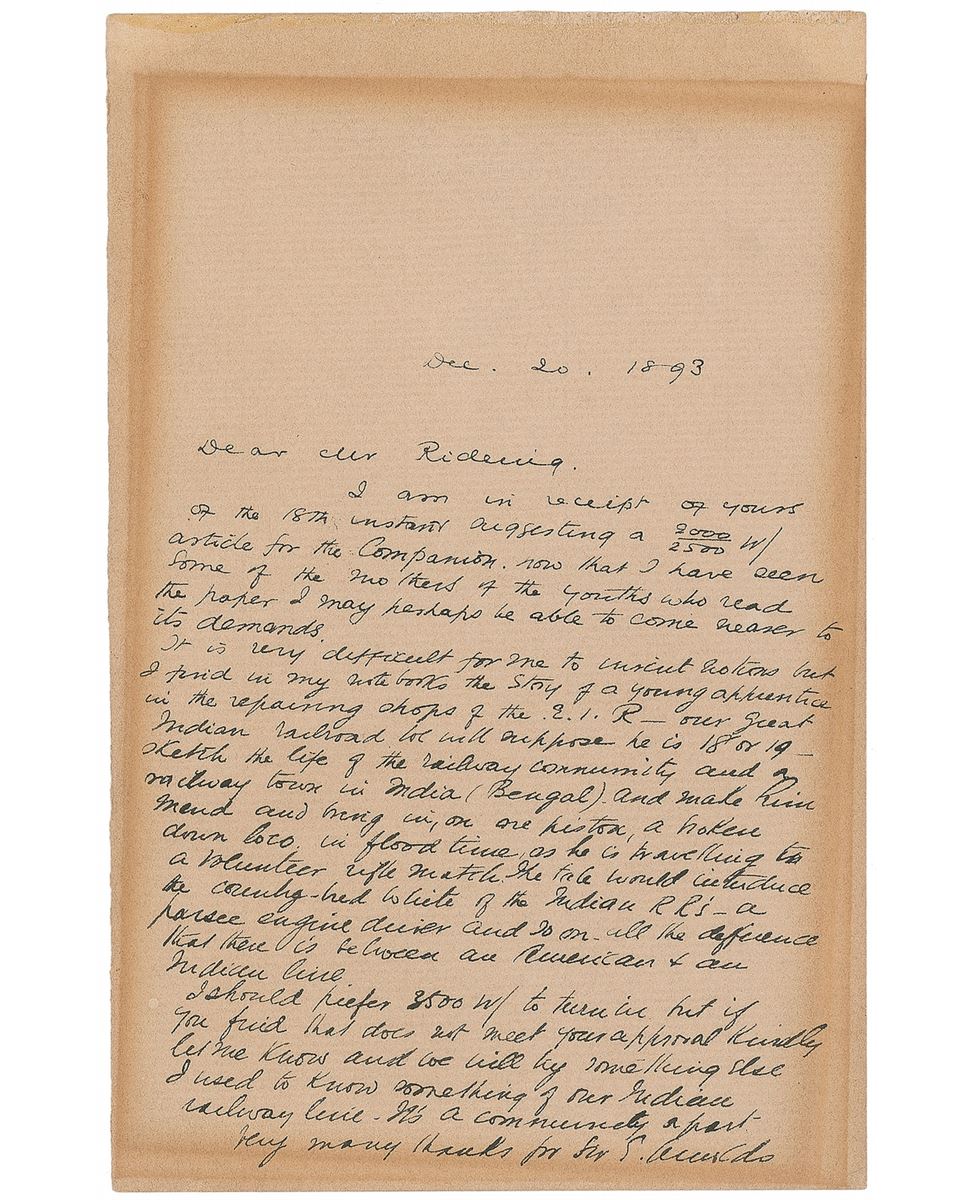 Dec. 20. 1893
Dear Mr Rideing.
I am in receipt of yours
of the 18th instant suggesting a 2000/2500 w/
article for the Companion. now that I have seen
some of the mothers of the youths who read
the paper I may perhaps be able to come nearer to
its demands.
It is very difficult for me to invent notions but
I find in my notebooks the story of a young apprentice
in the repairing shops of the E. I. R — our great
Indian railroad We will suppose he is 18 or 19 —
sketch the life of the railway community and a
railway town in India (Bengal) and make him
mend and bring in, on one piston, a broken
down loco, in flood time, as he is travelling to
a volunteer rifle match. The tale would introduce
the country-bred white of the Indian RR's — a
parsee engine driver and so on — all the difference
that there is between an American & an
Indian line
I should prefer 3500 w/ to turn in but if
you find that does not meet your approval kindly
let me know and we will try something else
I used to know something of our Indian
railway line — It's a community apart
Very many thanks for Sir E. Arnolds